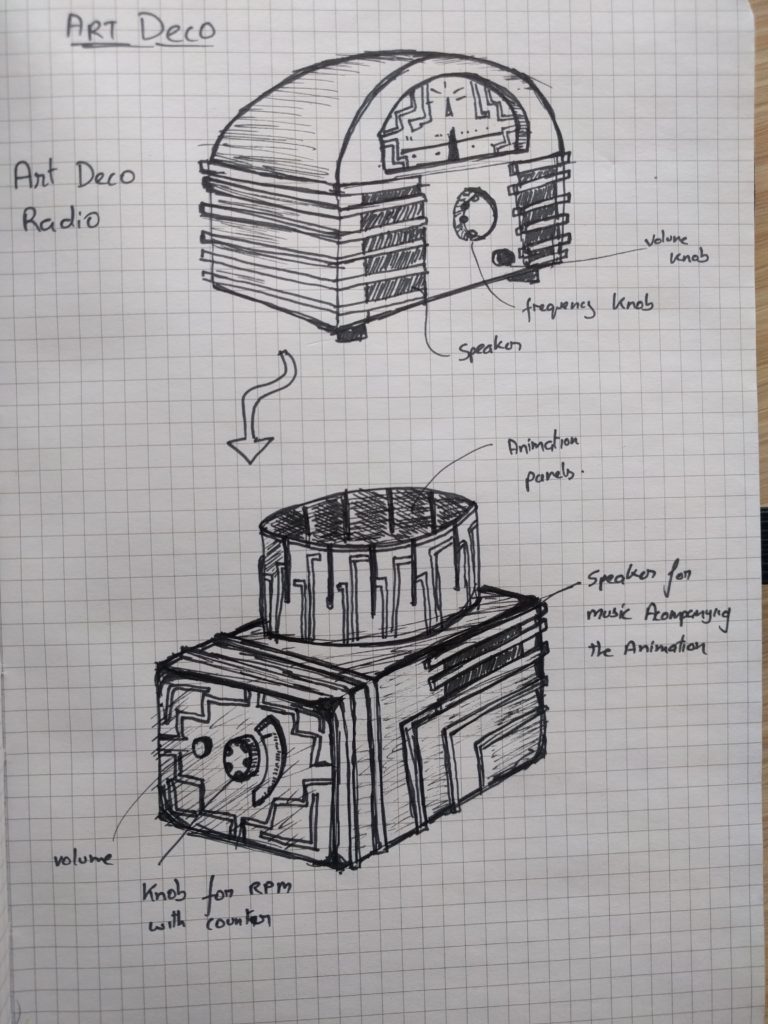 ART DECO
Art Deco
Radio
volume
knob
frequency knob
Speaker
Animation
panels.
Speaker for
music Acompanying
the Animation
volume
Knob for RPM
with counter